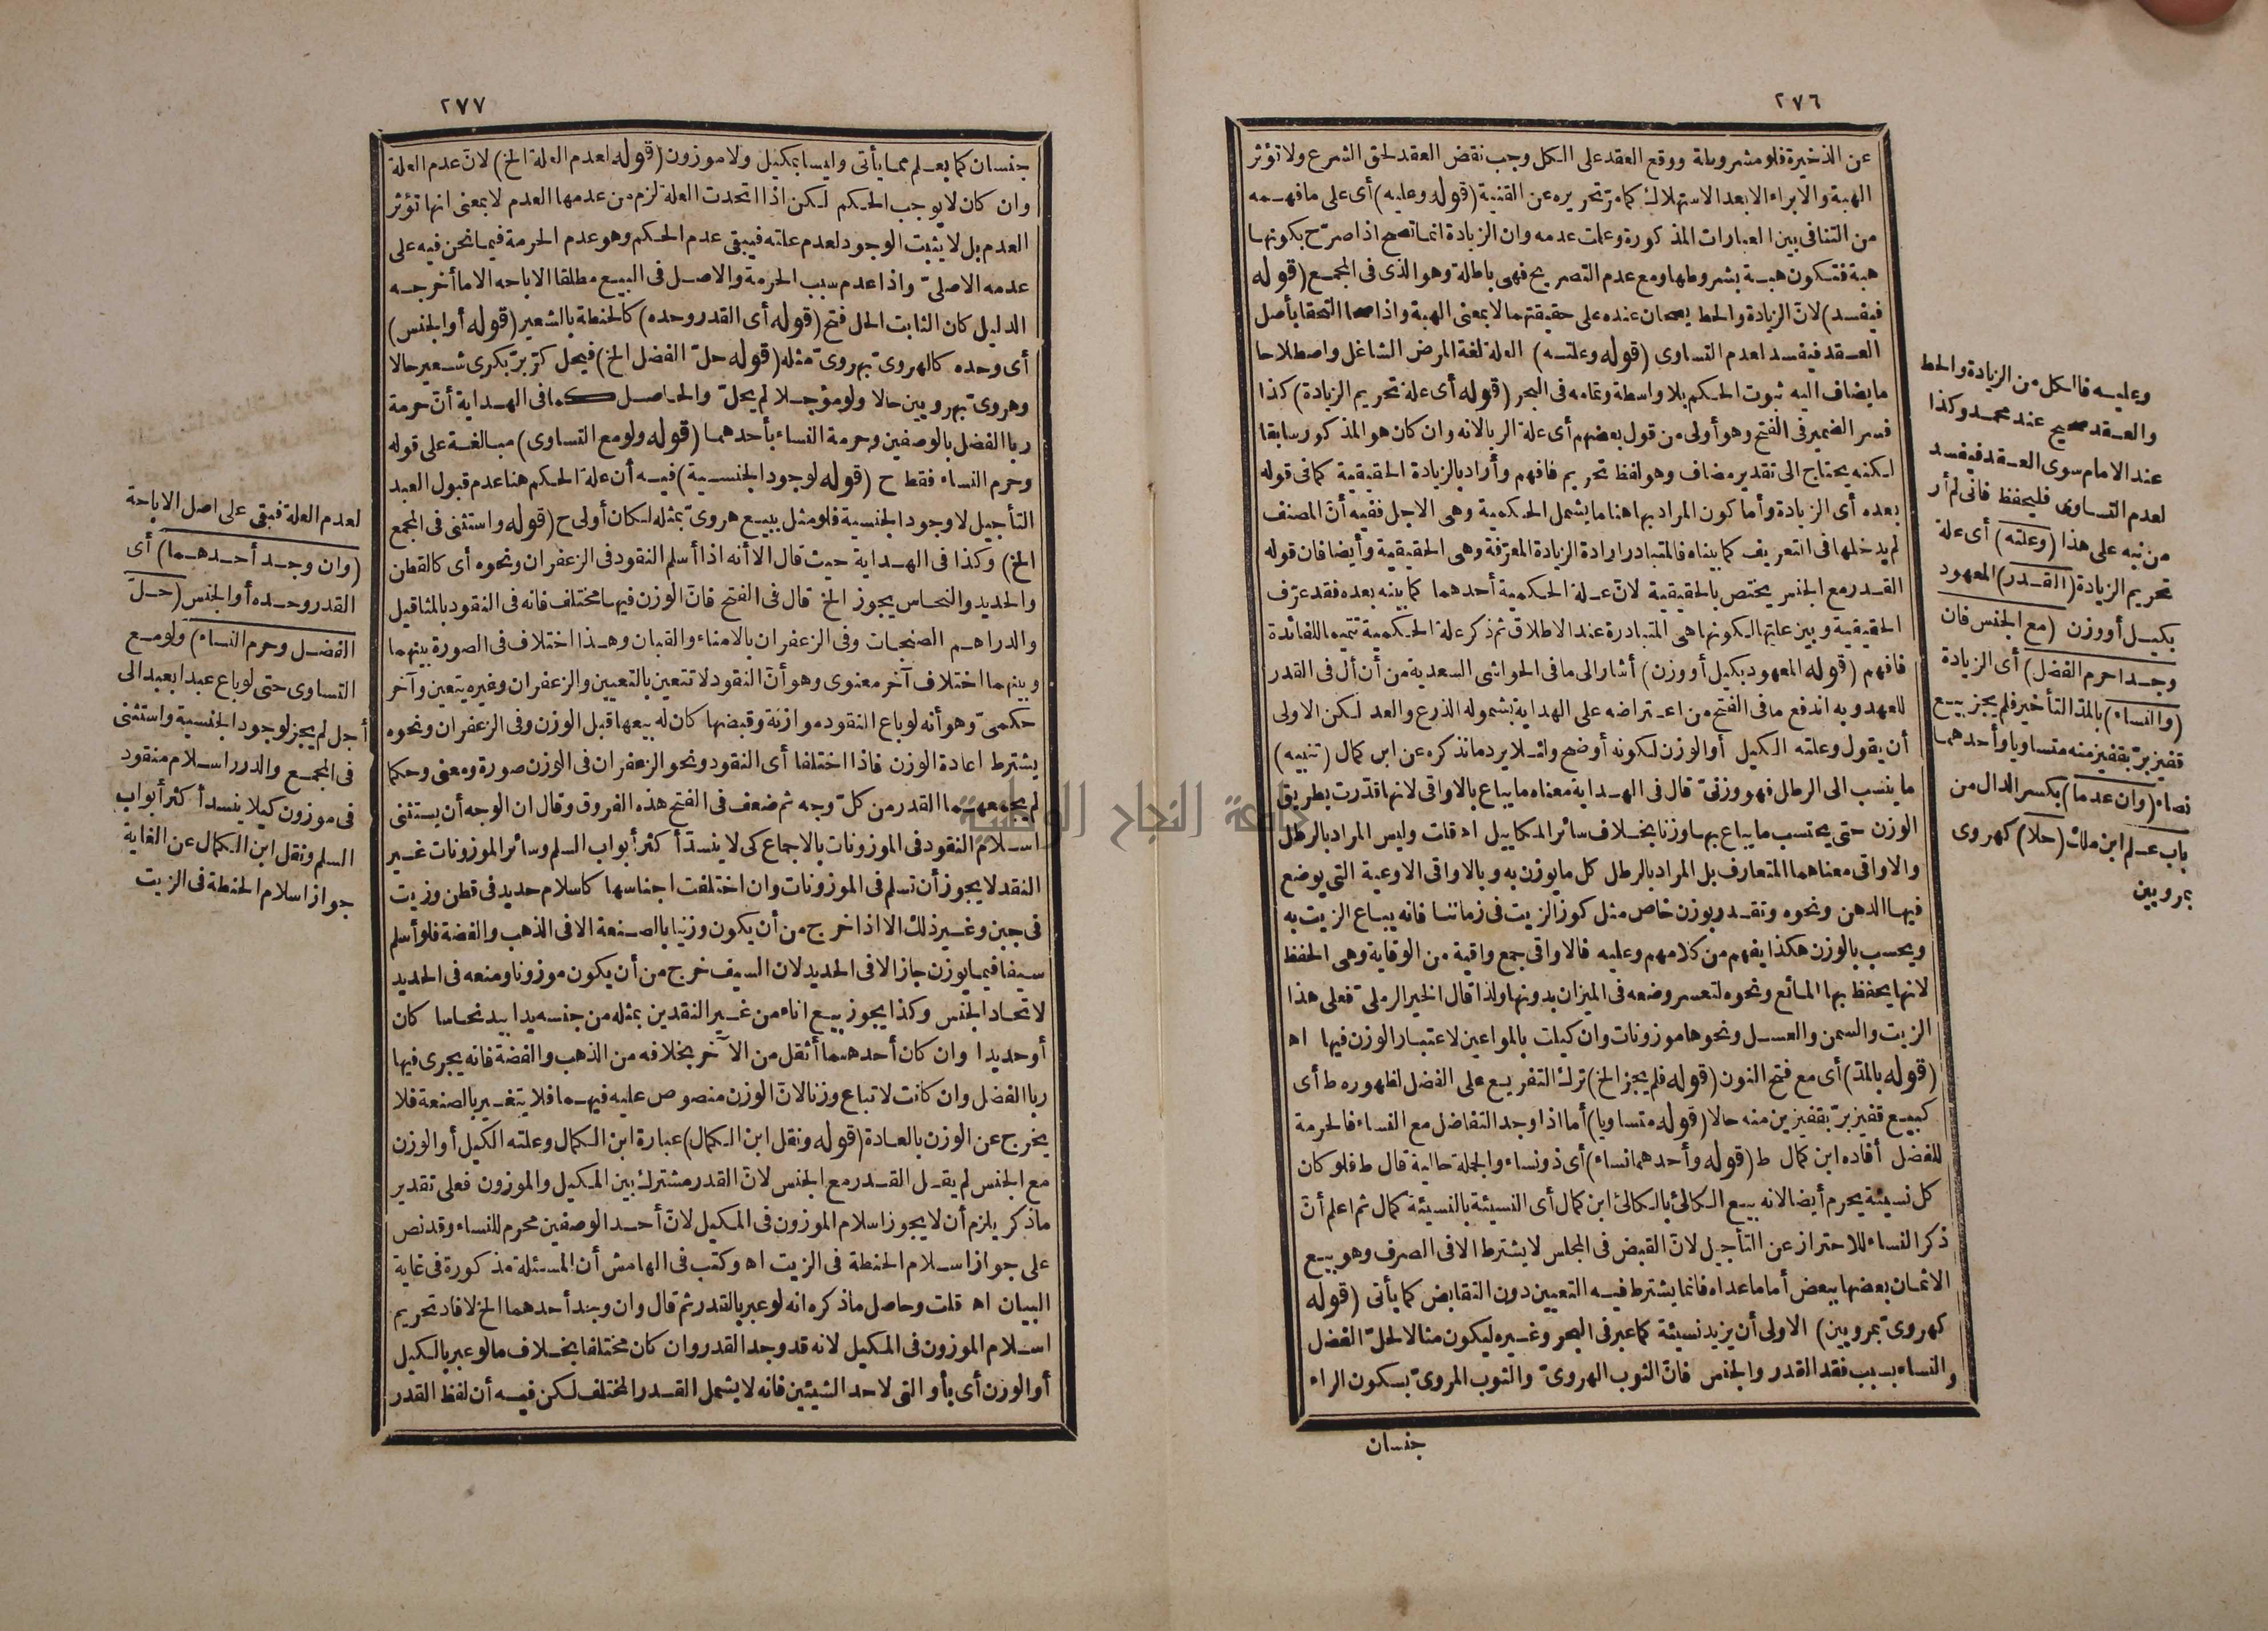 ٢٧٦
عن الذخيرة فلو مشروطة ووقع العقد على الكل وجب نقض العقد لحق الشرع ولا تؤثر
الهبة والابراء الا بعد الاستهلاك كما مرّ تحريره عن القنية (قوله وعليه) أى على ما فهمه
من التنافى بين العبارات المذكورة وعلمت عدمه وان الزيادة انما تصح اذا صرّح بكونها
هبة فتكون هبة بشروطها ومع عدم التصريح فهى باطلة وهو الذى فى المجمع (قوله
فيفسد) لانّ الزيادة والحط يصحان عنده على حقيقتهما لا بمعنى الهبة واذا صحا التحقا بأصل
العقد فيفسد لعدم التساوى (قوله وعلته) العلة لغة المرض الشاغل واصطلاحا
ما يضاف اليه ثبوت الحكم بلا واسطة وتمامه فى البحر (قوله أى علة تحريم الزيادة) كذا
فسر الضمير فى الفتح وهو أولى من قول بعضهم أى علة الربا لانه وان كان هو المذكور سابقا
لكنه يحتاج الى تقدير مضاف وهو لفظ تحريم فافهم وأراد بالزيادة الحقيقية كما فى قوله
بعده أى الزيادة وأما كون المراد بها هنا ما يشمل الحكمية وهى الاجل ففيه أنّ المصنف
لم يدخلها فى التعريف كما بيناه فالمتبادر ارادة الزيادة المعرّفة وهى الحقيقية وأيضا فان قوله
القدر مع الجنس يختص بالحقيقية لانّ علة الحكمية أحدهما كما بينه بعده فقد عرّف
الحقيقية وبين علتها لكونها هى المتبادرة عند الاطلاق ثم ذكر علة الحكمية تتميما للفائدة
فافهم (قوله المعهود بكيل أو وزن) أشار الى ما فى الحواشى السعدية من أن أل فى القدر
للعهد وبه اندفع ما فى الفتح من اعتراضه على الهداية بشموله الذرع والعد لكن الاولى
أن يقول وعلته الكيل أو الوزن لكونه أوضح ولئلا يرد ما نذكره عن ابن كمال (تنبيه)
ما ينسب الى الرطل فهو وزنىّ قال فى الهداية معناه ما يباع بالاواقى لانها قدّرت بطريق
الوزن حتى يحتسب ما يباع بها وزنا بخلاف سائر المكاييل اه قلت وليس المراد بالرطل
والاواقى معناهما المتعارف بل المراد بالرطل كل ما يوزن به وبالاواقى الاوعية التى يوضع
فيها الدهن ونحوه وتقدر بوزن خاص مثل كوز الزيت فى زماننا فانه يباع الزيت به
ويحسب بالوزن هكذا يفهم من كلامهم وعليه فالاواقى جمع واقية من الوقاية وهى الحفظ
لانها يحفظ بها المائع ونحوه لتعسر وضعه فى الميزان بدونها ولذا قال الخير الرملىّ فعلى هذا
الزيت والسمن والعسل ونحوها موزونات وان كيلت بالمواعين لاعتبار الوزن فيها اه
(قوله بالمدّ) أى مع فتح النون (قوله فلم يجز الخ) ترك التفريع على الفضل لظهوره ط أى
كبيع قفيز برّ بقفيزين منه حالا (قوله متساويا) أما اذا وجد التفاضل مع النساء فالحرمة
للفضل أفاده ابن كمال ط (قوله وأحدهما نساء) أى ذو نساء والجملة حالية قال ط فلو كان
كل نسيئة يحرم أيضا لانه بيع الكالئ بالكالئ ابن كمال أى النسيئة بالنسيئة كمال ثم اعلم أنّ
ذكر النساء للاحتراز عن التأجيل لانّ القبض فى المجلس لا يشترط الا فى الصرف وهو بيع
الاثمان بعضها ببعض أما ما عداه فانما يشترط فيه التعيين دون التقابض كما يأتى (قوله
كهروىّ بمرويين) الاولى أن يزيد نسيئة كما عبر فى البحر وغيره ليكون مثالا لحلّ الفضل
والنساء بسبب فقد القدر والجنس فانّ الثوب الهروىّ والثوب المروىّ بسكون الراء
جنسان
وعليه فالكل من الزيادة والحط
والعقد صحيح عند محمد وكذا
عند الامام سوى العقد فيفسد
لعدم التساوى فليحفظ فانى لم أر
من نبه على هذا (وعلته) أى علة
تحريم الزيادة (القدر) المعهود
بكيل أو وزن (مع الجنس فان
وجدا حرم الفضل) أى الزيادة
(والنساء) بالمدّ التأخير فلم يجز بيع
قفيز برّ بقفيز منه متساويا وأحدهما
نساء (وان عدما) بكسر الدال من
باب علم ابن ملك (حلا) كهروى
بمرويين
٢٧٧
جنسان كما يعلم مما يأتى وليسا بمكيل ولا موزون (قوله لعدم العلة الخ) لانّ عدم العلة
وان كان لا يوجب الحكم لكن اذا اتحدت العلة لزم من عدمها العدم لا بمعنى انها تؤثر
العدم بل لا يثبت الوجود لعدم علته فيبقى عدم الحكم وهو عدم الحرمة فيما نحن فيه على
عدمه الاصلىّ واذا عدم سبب الحرمة والاصل فى البيع مطلقا الاباحه الا ما أخرجه
الدليل كان الثابت الحل فتح (قوله أى القدر وحده) كالحنطة بالشعير (قوله أو الجنس)
أى وحده كالهروىّ بهروىّ مثله (قوله حلّ الفضل الخ) فيحل كرّ برّ بكرى شعير حالا
وهروىّ بهرويين حالا ولو مؤجلا لم يحلّ والحاصل كما فى الهداية أنّ حرمة
ربا الفضل بالوصفين وحرمة النساء بأحدهما (قوله ولو مع التساوى) مبالغة على قوله
وحرم النساء فقط ح (قوله لوجود الجنسية) فيه أن علة الحكم هنا عدم قبول العبد
التأجيل لا وجود الجنسية فلو مثل ببيع هروىّ بمثله لكان أولى ح (قوله واستثنى فى المجمع
الخ) وكذا فى الهداية حيث قال الا أنه اذا أسلم النقود فى الزعفران ونحوه أى كالقطن
والحديد والنحاس يجوز الخ قال فى الفتح فانّ الوزن فيها مختلف فانه فى النقود بالمثاقيل
والدراهم الصنجات وفى الزعفران بالامناء والقبان وهذا اختلاف فى الصورة بينهما
وبينهما اختلاف آخر معنوى وهو أنّ النقود لا تتعين بالتعيين والزعفران وغيره يتعين وآخر
حكمىّ وهو أنه لو باع النقود موازنة وقبضها كان له بيعها قبل الوزن وفى الزعفران ونحوه
يشترط اعادة الوزن فاذا اختلفا أى النقود ونحو الزعفران فى الوزن صورة ومعنى وحكما
لم يجمعهما القدر من كلّ وجه ثم ضعف فى الفتح هذه الفروق وقال ان الوجه أن يستثنى
اسلام النقود فى الموزونات بالاجماع كى لا ينسدّ أكثر أبواب السلم وسائر الموزونات غير
النقد لا يجوز أن تسلم فى الموزونات وان اختلفت اجناسها كاسلام حديد فى قطن وزيت
فى جبن وغير ذلك الا اذا خرج من أن يكون وزنيا بالصنعة الا فى الذهب والفضة فلو أسلم
سيفا فيما يوزن جاز الا فى الحديد لان السيف خرج من أن يكون موزونا ومنعه فى الحديد
لاتحاد الجنس وكذا يجوز بيع اناء من غير النقدين بمثله من جنسه يدا بيد نحاسا كان
أو حديدا وان كان أحدهما أثقل من الآخر بخلافه من الذهب والفضة فانه يجرى فيها
ربا الفضل وان كانت لا تباع وزنا لانّ الوزن منصوص عليه فيهما فلا يتغير بالصنعة فلا
يخرج عن الوزن بالعادة (قوله ونقل ابن الكمال) عبارة ابن الكمال وعلته الكيل أو الوزن
مع الجنس لم يقل القدر مع الجنس لانّ القدر مشترك بين المكيل والموزون فعلى تقدير
ما ذكر يلزم أن لا يجوز اسلام الموزون فى المكيل لانّ أحد الوصفين محرم للنساء وقد نص
على جواز اسلام الحنطة فى الزيت اه وكتب فى الهامش أن المسئلة مذكورة فى غاية
البيان اه قلت وحاصل ما ذكره انه لو عبر بالقدر ثم قال وان وجد أحدهما الخ لافاد تحريم
اسلام الموزون فى المكيل لانه قد وجد القدر وان كان مختلفا بخلاف ما لو عبر بالكيل
أو الوزن أى بأو التى لاحد الشيئين فانه لا يشمل القدر المختلف لكن فيه أن لفظ القدر
لعدم العلة فبقى على اصل الاباحة
(وان وجد أحدهما) أى
القدر وحده أو الجنس (حلّ
الفضل وحرم النساء) ولو مع
التساوى حتى لو باع عبدا بعبد الى
أجل لم يجز لوجود الجنسية واستثنى
فى المجمع والدرر اسلام منقود
فى موزون كيلا ينسدّ أكثر أبواب
السلم ونقل ابن الكمال عن الغاية
جواز اسلام الحنطة فى الزيت
جامعة النجاح الوطنية